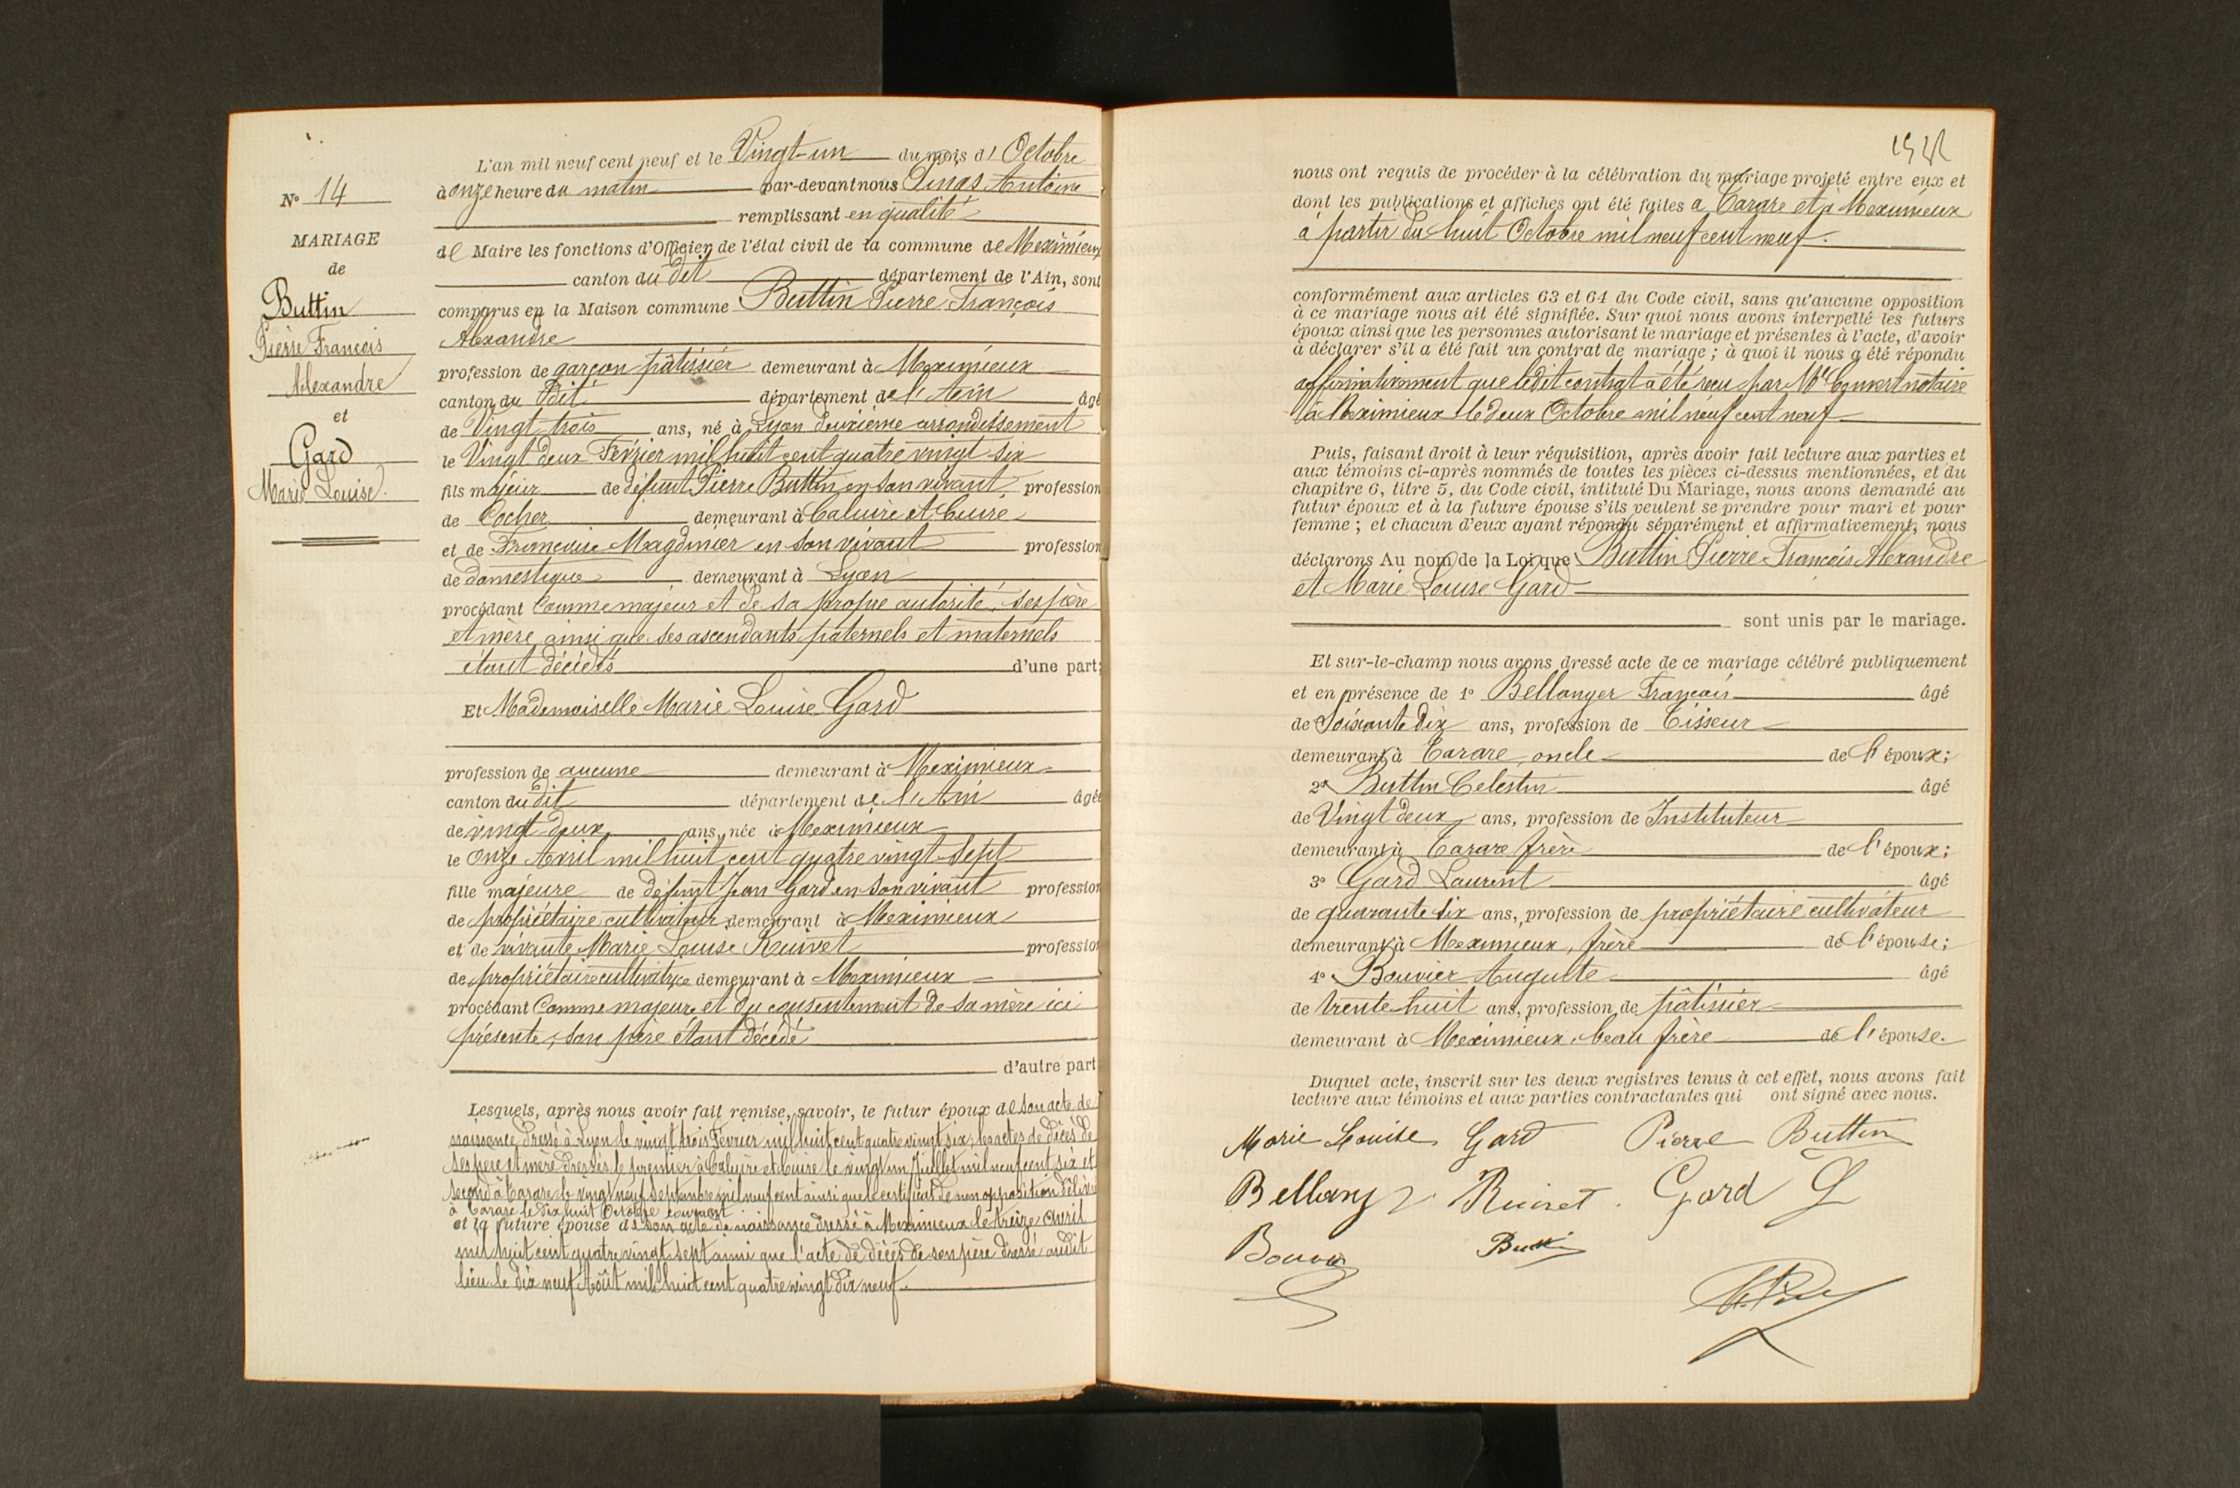 N° 14
MARIAGE
de
Buttin
Pierre François
Alexandre
et
Gard
Marie Louise.
L'an mil neuf cent neuf et le Vingt-un du mois d' Octobre
à onze heure du matin par-devant nous Antoine
remplissant en qualité
de Maire les fonctions d'Officier de l'état civil de la commune de Meximieux
canton du dit département de l'Ain, sont
comparus en la Maison commune Buttin Pierre François
Alexandre
profession de garçon pâtissier demeurant à Meximieux
canton du dit département de l'Ain âgé
de Vingt trois ans, né à Lyon deuxième arrondissement
le Vingt deux Février mil huit cent quatre vingt six
fils majeur de défunt Pierre Buttin en son vivant profession
de Cocher demeurant à Caluire et Cuire
et de Françoise Magdinier en son vivant profession
de domestique demeurant à Lyon
procédant comme majeur et de sa propre autorité, ses père
et mère ainsi que ses ascendants paternels et maternels
étant décédés d'une part;
Et Mademoiselle Marie Louise Gard
profession de aucune demeurant à Meximieux
canton du dit département de l'Ain âgée
de vingt-deux ans, née à Meximieux
le onze Avril mil huit cent quatre vingt-sept
fille majeure de défunt Jean Gard en son vivant profession
de propriétaire cultivateur demeurant à Meximieux
et de vivante Marie Louise Ruivet profession
de propriétaire cultivatrice demeurant à Meximieux
procédant comme majeure et du consentement de sa mère ici
présente, son père étant décédé
d'autre part
Lesquels, après nous avoir fait remise, savoir, le futur époux de son acte de
naissance dressé à Lyon le vingt trois Février mil huit cent quatre vingt six, les actes de décès de
ses père et mère dressés le premier à Caluire et Cuire le vingt un Juillet mil neuf cent six et
second à Tarare le vingt neuf Septembre mil neuf cent ainsi que le certificat de non opposition délivré
à Tarare le dix huit Octobre courant
et la future épouse de son acte de naissance dressé à Meximieux le treize avril
mil huit cent quatre vingt sept ainsi que l'acte de décès de son père dressé audit
lieu le dix neuf Août mil huit cent quatre vingt dix neuf.
nous ont requis de procéder à la célébration du mariage projeté entre eux et
dont les publications et affiches ont été faites à Tarare et à Meximieux
à partir du huit Octobre mil neuf cent neuf.
conformément aux articles 63 et 64 du Code civil, sans qu'aucune opposition
à ce mariage nous ait été signifiée. Sur quoi nous avons interpellé les futurs
époux ainsi que les personnes autorisant le mariage et présentes à l'acte, d'avoir
à déclarer s'il a été fait un contrat de mariage; à quoi il nous a été répondu
affirmativement que ledit contrat a été reçu par Me Convert notaire
à Meximieux le deux Octobre mil neuf cent neuf
Puis, faisant droit à leur réquisition, après avoir fait lecture aux parties et
aux témoins ci-après nommés de toutes les pièces ci-dessus mentionnées, et du
chapitre 6, titre 5, du Code civil, intitulé Du Mariage, nous avons demandé au
futur époux et à la future épouse s'ils veulent se prendre pour mari et pour
femme; et chacun d'eux ayant répondu séparément et affirmativement, nous
déclarons Au nom de la Loi que Buttin Pierre François Alexandre
et Marie Louise Gard
sont unis par le mariage.
Et sur-le-champ nous avons dressé acte de ce mariage célébré publiquement
et en présence de 1° Bellanger François âgé
de Soixante dix ans, profession de Tisseur
demeurant à Tarare, oncle de l'époux;
2° Buttin Celestin âgé
de Vingt deux ans, profession de Instituteur
demeurant à Tarare frère de l'époux;
3° Gard Laurent âgé
de quarante six ans, profession de propriétaire cultivateur
demeurant à Meximieux, frère de l'épouse;
4° Bouvier Auguste âgé
de trente huit ans, profession de pâtissier
demeurant à Meximieux, beau frère de l'épouse.
Duquel acte, inscrit sur les deux registres tenus à cet effet, nous avons fait
lecture aux témoins et aux parties contractantes qui ont signé avec nous.
Marie Louise Gard Pierre Buttin
Ruivet. Gard L